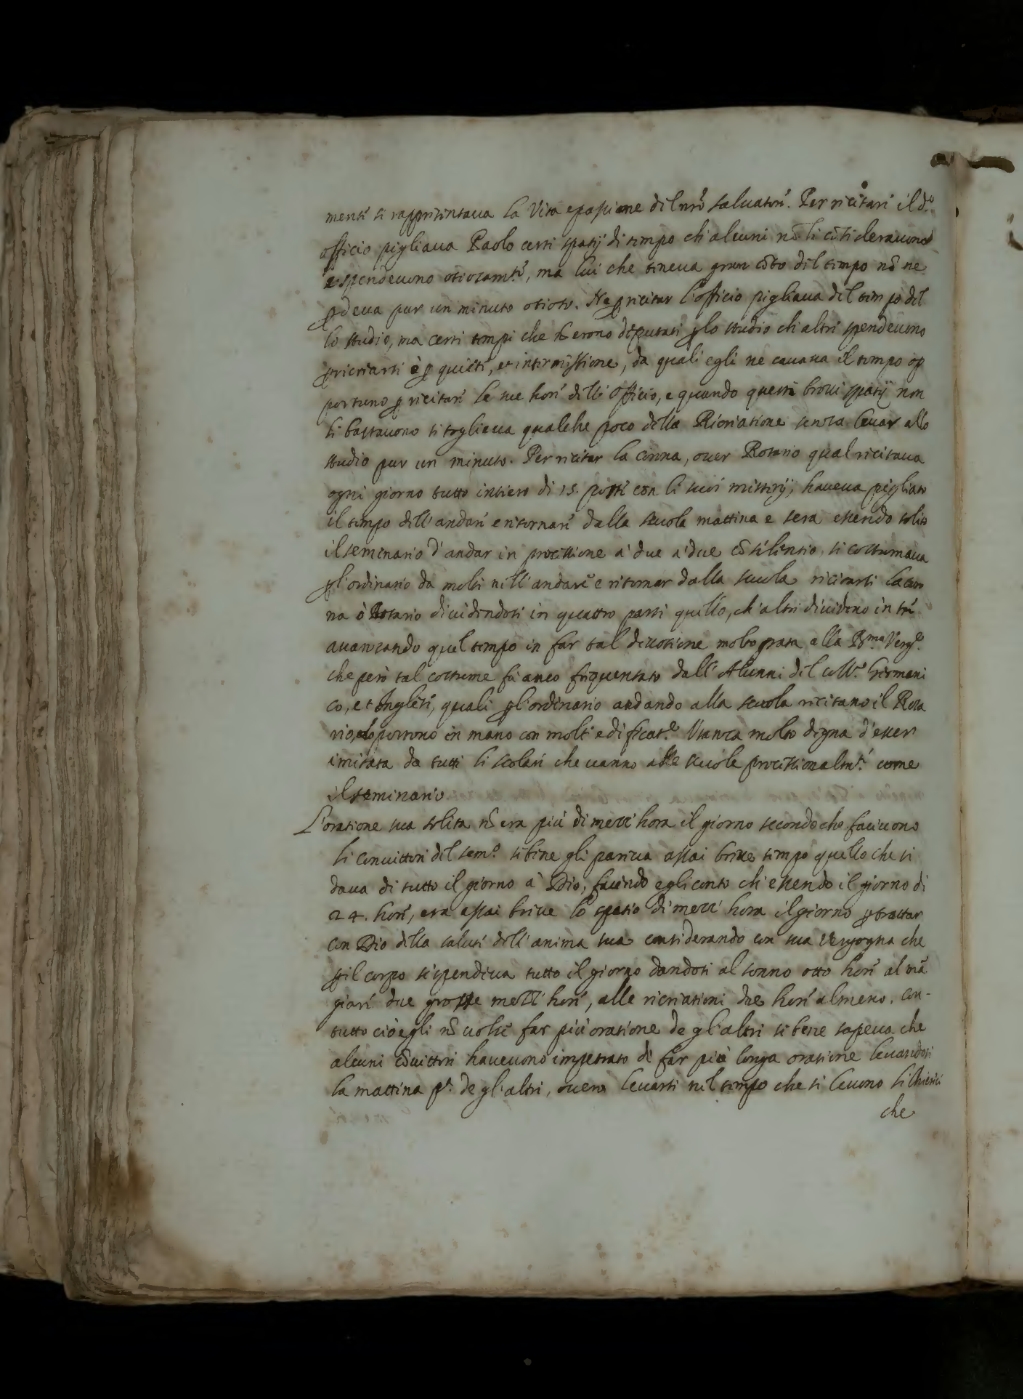 menti si rappresentava la Vita e passione del nrõ salvatore. Per recitare il dº
officio pigliava Paolo certi spatij di tempo ch'alcuni nõ li cõsideravano
e spendevano otiosamte, ma lui che teneva gran cõto del tempo nõ ne
pdeva pur un minuto otioso. Ne p recitar l'officio pigliava del tempo del
lo studio, ma certi tempi che li erono deputati p lo studio ch'altri spendevono
p ricriarsi e p quieti, et intermissione, da quali egli ne cavava il tempo op
portuno p recitare le sue hore dell'officio, e quando questi brevi spatij non
li bastavono si togliava qualche poco della Ricriatione senza levar allo
studio pur un minuto. Per recitar la corona, over Rosario qual recitava
ogni giorno tutto intiero di 15. posti con li suoi misterij, haveva pigliato
il tempo dell'andare e ritornare dalla scuola mattina e sera essendo solito
il seminario d'andar in processione a' due a' due cõ silentio. si costumava
p l'ordinario da molti nell'andare e ritornar dalla scuola recitarsi la coro
na ò Rosario dividendosi in quattro parti quello, ch'altri dividono in tre
avanzando quel tempo in far tal devotione molto grata alla Bma Verge
che però tal costume fu anco frequentato dall'Alunni del collº Germani
co, et Inglese, quali p l'ordinario andando alla scuola recitano il Rosa
rio, lo portono in mano con molta edificatne. Usanza molto degna d'esser
imitata da tutti li scolari che vanno alle scuole processionalmte come
il seminario
L'oratione sua solita nõ era più di mezz'hora il giorno secondo che facevono
li convittori del semº. si bene gli pareva assai breve tempo quello che si
dava di tutto il giorno à Dio, facendo egli conto ch'essendo il giorno di
24. hore, era assai breve lo spatio di mezz'hora il giorno p trattar
con Dio della salute dell'anima sua considerando con sua vergogna che
p il corpo si spendeva tutto il giorno dandosi al sonno otto hore al mã
giare due grosse mezz'hore, alle ricriationi due hore almeno. con-
tutto ciò egli nõ volse far più oratione de gl'altri si bene sapeva che
alcuni cõvittori havevono impetrato di far più longa oratione levandosi
la mattina pª de gl'altri, overo levarsi nel tempo che si levono li
che